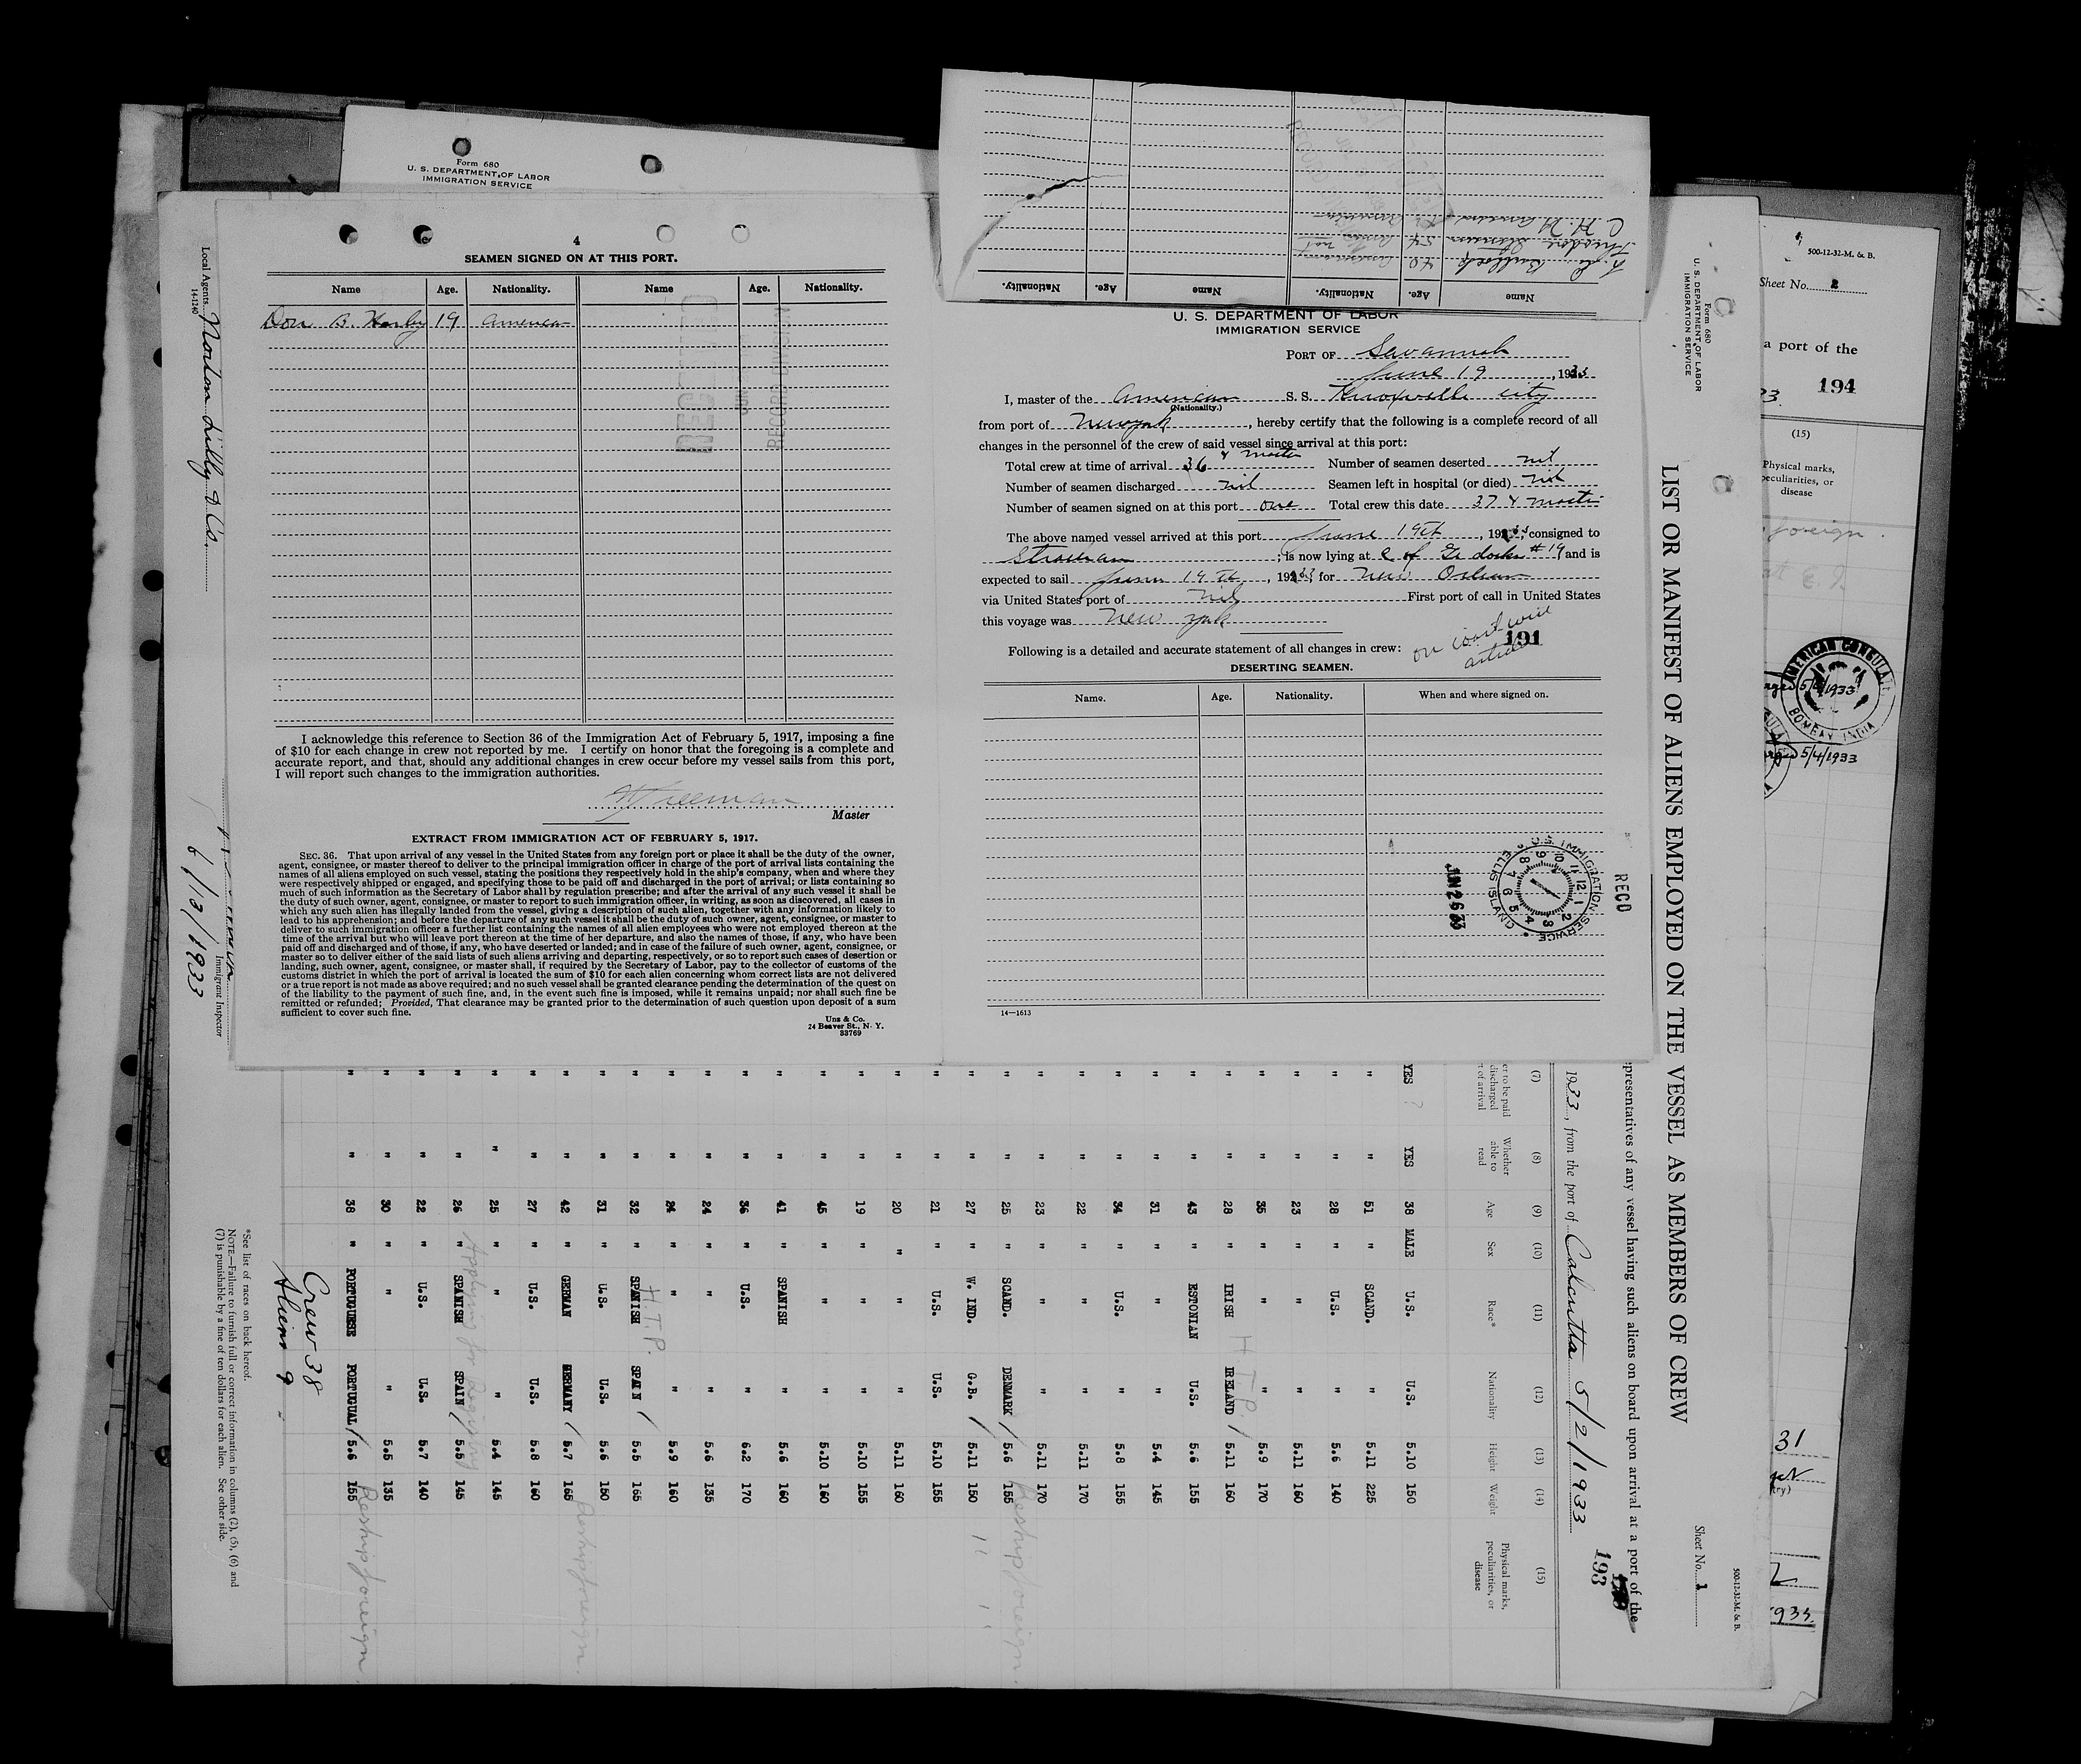 Form 680
U. S. DEPARTMENT OF LABOR
IMMIGRATION SERVICE
4
SEAMEN SIGNED ON AT THIS PORT.
Name Age. Nationality. Name Age. Nationality.
Don B. 19 American
RECORDS DIVISION
I acknowledge this reference to Section 36 of the Immigration Act of February 5, 1917, imposing a fine
of $10 for each change in crew not reported by me. I certify on honor that the foregoing is a complete and
accurate report, and that, should any additional changes in crew occur before my vessel sails from this port,
I will report such changes to the immigration authorities.
Master
EXTRACT FROM IMMIGRATION ACT OF FEBRUARY 5, 1917.
SEC. 36. That upon arrival of any vessel in the United States from any foreign port or place it shall be the duty of the owner,
agent, consignee, or master thereof to deliver to the principal immigration officer in charge of the port of arrival lists containing the
names of all aliens employed on such vessel, stating the positions they respectively hold in the ship's company, when and where they
were respectively shipped or engaged, and specifying those to be paid off and discharged in the port of arrival; or lists containing so
much of such information as the Secretary of Labor shall by regulation prescribe; and after the arrival of any such vessel it shall be
the duty of such owner, agent, consignee, or master to report to such immigration officer, in writing, as soon as discovered, all cases in
which any such alien has illegally landed from the vessel, giving a description of such alien, together with any information likely to
lead to his apprehension; and before the departure of any such vessel it shall be the duty of such owner, agent, consignee, or master to
deliver to such immigration officer a further list containing the names of all alien employees who were not employed thereon at the
time of the arrival but who will leave port thereon at the time of her departure, and also the names of those, if any, who have been
paid off and discharged and of those, if any, who have deserted or landed; and in case of the failure of such owner, agent, consignee, or
master so to deliver either of the said lists of such aliens arriving and departing, respectively, or so to report such cases of desertion or
landing, such owner, agent, consignee, or master shall, if required by the Secretary of Labor, pay to the collector of customs of the
customs district in which the port of arrival is located the sum of $10 for each alien concerning whom correct lists are not delivered
or a true report is not made as above required; and no such vessel shall be granted clearance pending the determination of the quest on
of the liability to the payment of such fine, and, in the event such fine is imposed, while it remains unpaid; nor shall such fine be
remitted or refunded; Provided, That clearance may be granted prior to the determination of such question upon deposit of a sum
sufficient to cover such fine.
Unz & Co.
24 Beaver St., N. Y.
33769
Name Age. Nationality. Name Age. Nationality.
Bullock 40
Theodore 54
U. S. DEPARTMENT OF LABOR
IMMIGRATION SERVICE
PORT OF Savannah
June 19, 1933
I, master of the American S. S. Knoxville City
(Nationality.)
from port of New York, hereby certify that the following is a complete record of all
changes in the personnel of the crew of said vessel since arrival at this port:
Total crew at time of arrival 36 & master Number of seamen deserted nil
Number of seamen discharged nil Seamen left in hospital (or died) nil
Number of seamen signed on at this port one Total crew this date 37 & master
The above named vessel arrived at this port June 19th, 1933, consigned to
Strachan; is now lying at C of Ga docks #19 and is
expected to sail June 19th, 1933, for New Orleans
via United States port of nil First port of call in United States
this voyage was New York
Following is a detailed and accurate statement of all changes in crew: on coastwise articles
191
DESERTING SEAMEN.
Name. Age. Nationality. When and where signed on.
14—1613
RECD
U.S. IMMIGRATION SERVICE
ELLIS ISLAND
JUN 26 33
Local Agents Norton Lilly & Co.
14-1240
Immigrant Inspector
6/13/1933
Form 680
U. S. DEPARTMENT OF LABOR
IMMIGRATION SERVICE
500-12-32-M. & B.
Sheet No. 1
LIST OR MANIFEST OF ALIENS EMPLOYED ON THE VESSEL AS MEMBERS OF CREW
presentatives of any vessel having such aliens on board upon arrival at a port of the
193
1933, from the port of Calcutta 5/2/1933
(7) (8) (9) (10) (11) (12) (13) (14) (15)
er to be paid discharged t of arrival
Whether able to read
Age Sex Race* Nationality Height Weight
Physical marks, peculiarities, or disease
YES ? YES 38 MALE U.S. U.S. 5.10 150
" " 51 " SCAND. " 5.11 225
" " 28 " U.S. " 5.6 140
" " 23 " " " 5.11 160
" " 35 " " " 5.9 170
" " 28 " IRISH IRELAND / 5.11 160
H.T.P.
" " 43 " ESTONIAN U.S. 5.6 155
" " 31 " " " 5.4 145
" " 34 " U.S. " 5.8 155
" " 22 " " " 5.11 170
" " 23 " " " 5.11 170
" " 25 " SCAND. DENMARK / 5.6 155 Reship foreign
" " 27 " W. IND. G.B. / 5.11 150 " "
" " 21 " U.S. U.S. 5.10 155
" " 20 " " " 5.11 160
" " 19 " " " 5.10 155
" " 45 " " " 5.10 160
" " 41 " SPANISH " 5.6 160
" " 36 " U.S. " 6.2 170
" " 24 " " " 5.6 135
" " 24 " " " 5.9 160
" " 32 " SPANISH SPAIN / 5.5 165
H.T.P.
" " 31 " U.S. U.S. 5.6 150
" " 42 " GERMAN GERMANY / 5.7 165 Reship foreign.
" " 27 " U.S. U.S. 5.8 160
" " 25 " " " 5.4 145
" " 26 " SPANISH SPAIN / 5.5 145
Applying for Registry
" " 22 " U.S. U.S. 5.7 140
" " 30 " " " 5.5 135
" " 38 " PORTUGUESE PORTUGUAL / 5.6 155 Reship foreign.
Crew 38
Aliens 9
*See list of races on back hereof.
NOTE.—Failure to furnish full or correct information in columns (2), (5), (6) and
(7) is punishable by a fine of ten dollars for each alien. See other side.
500-12-32-M. & B.
Sheet No. 2
a port of the
194
(15)
Physical marks,
peculiarities, or
disease
foreign.
AMERICAN CONSULATE
BOMBAY INDIA
5/4/1933
5/4/1933
31